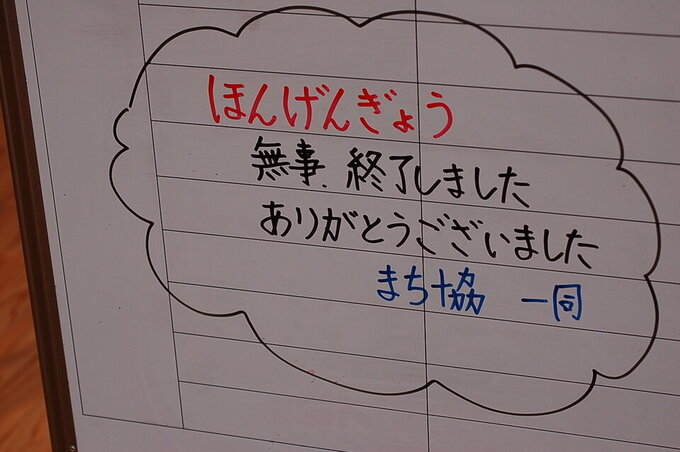 ほんげんぎょう
無事、終了しました
ありがとうございました
まち協 一同